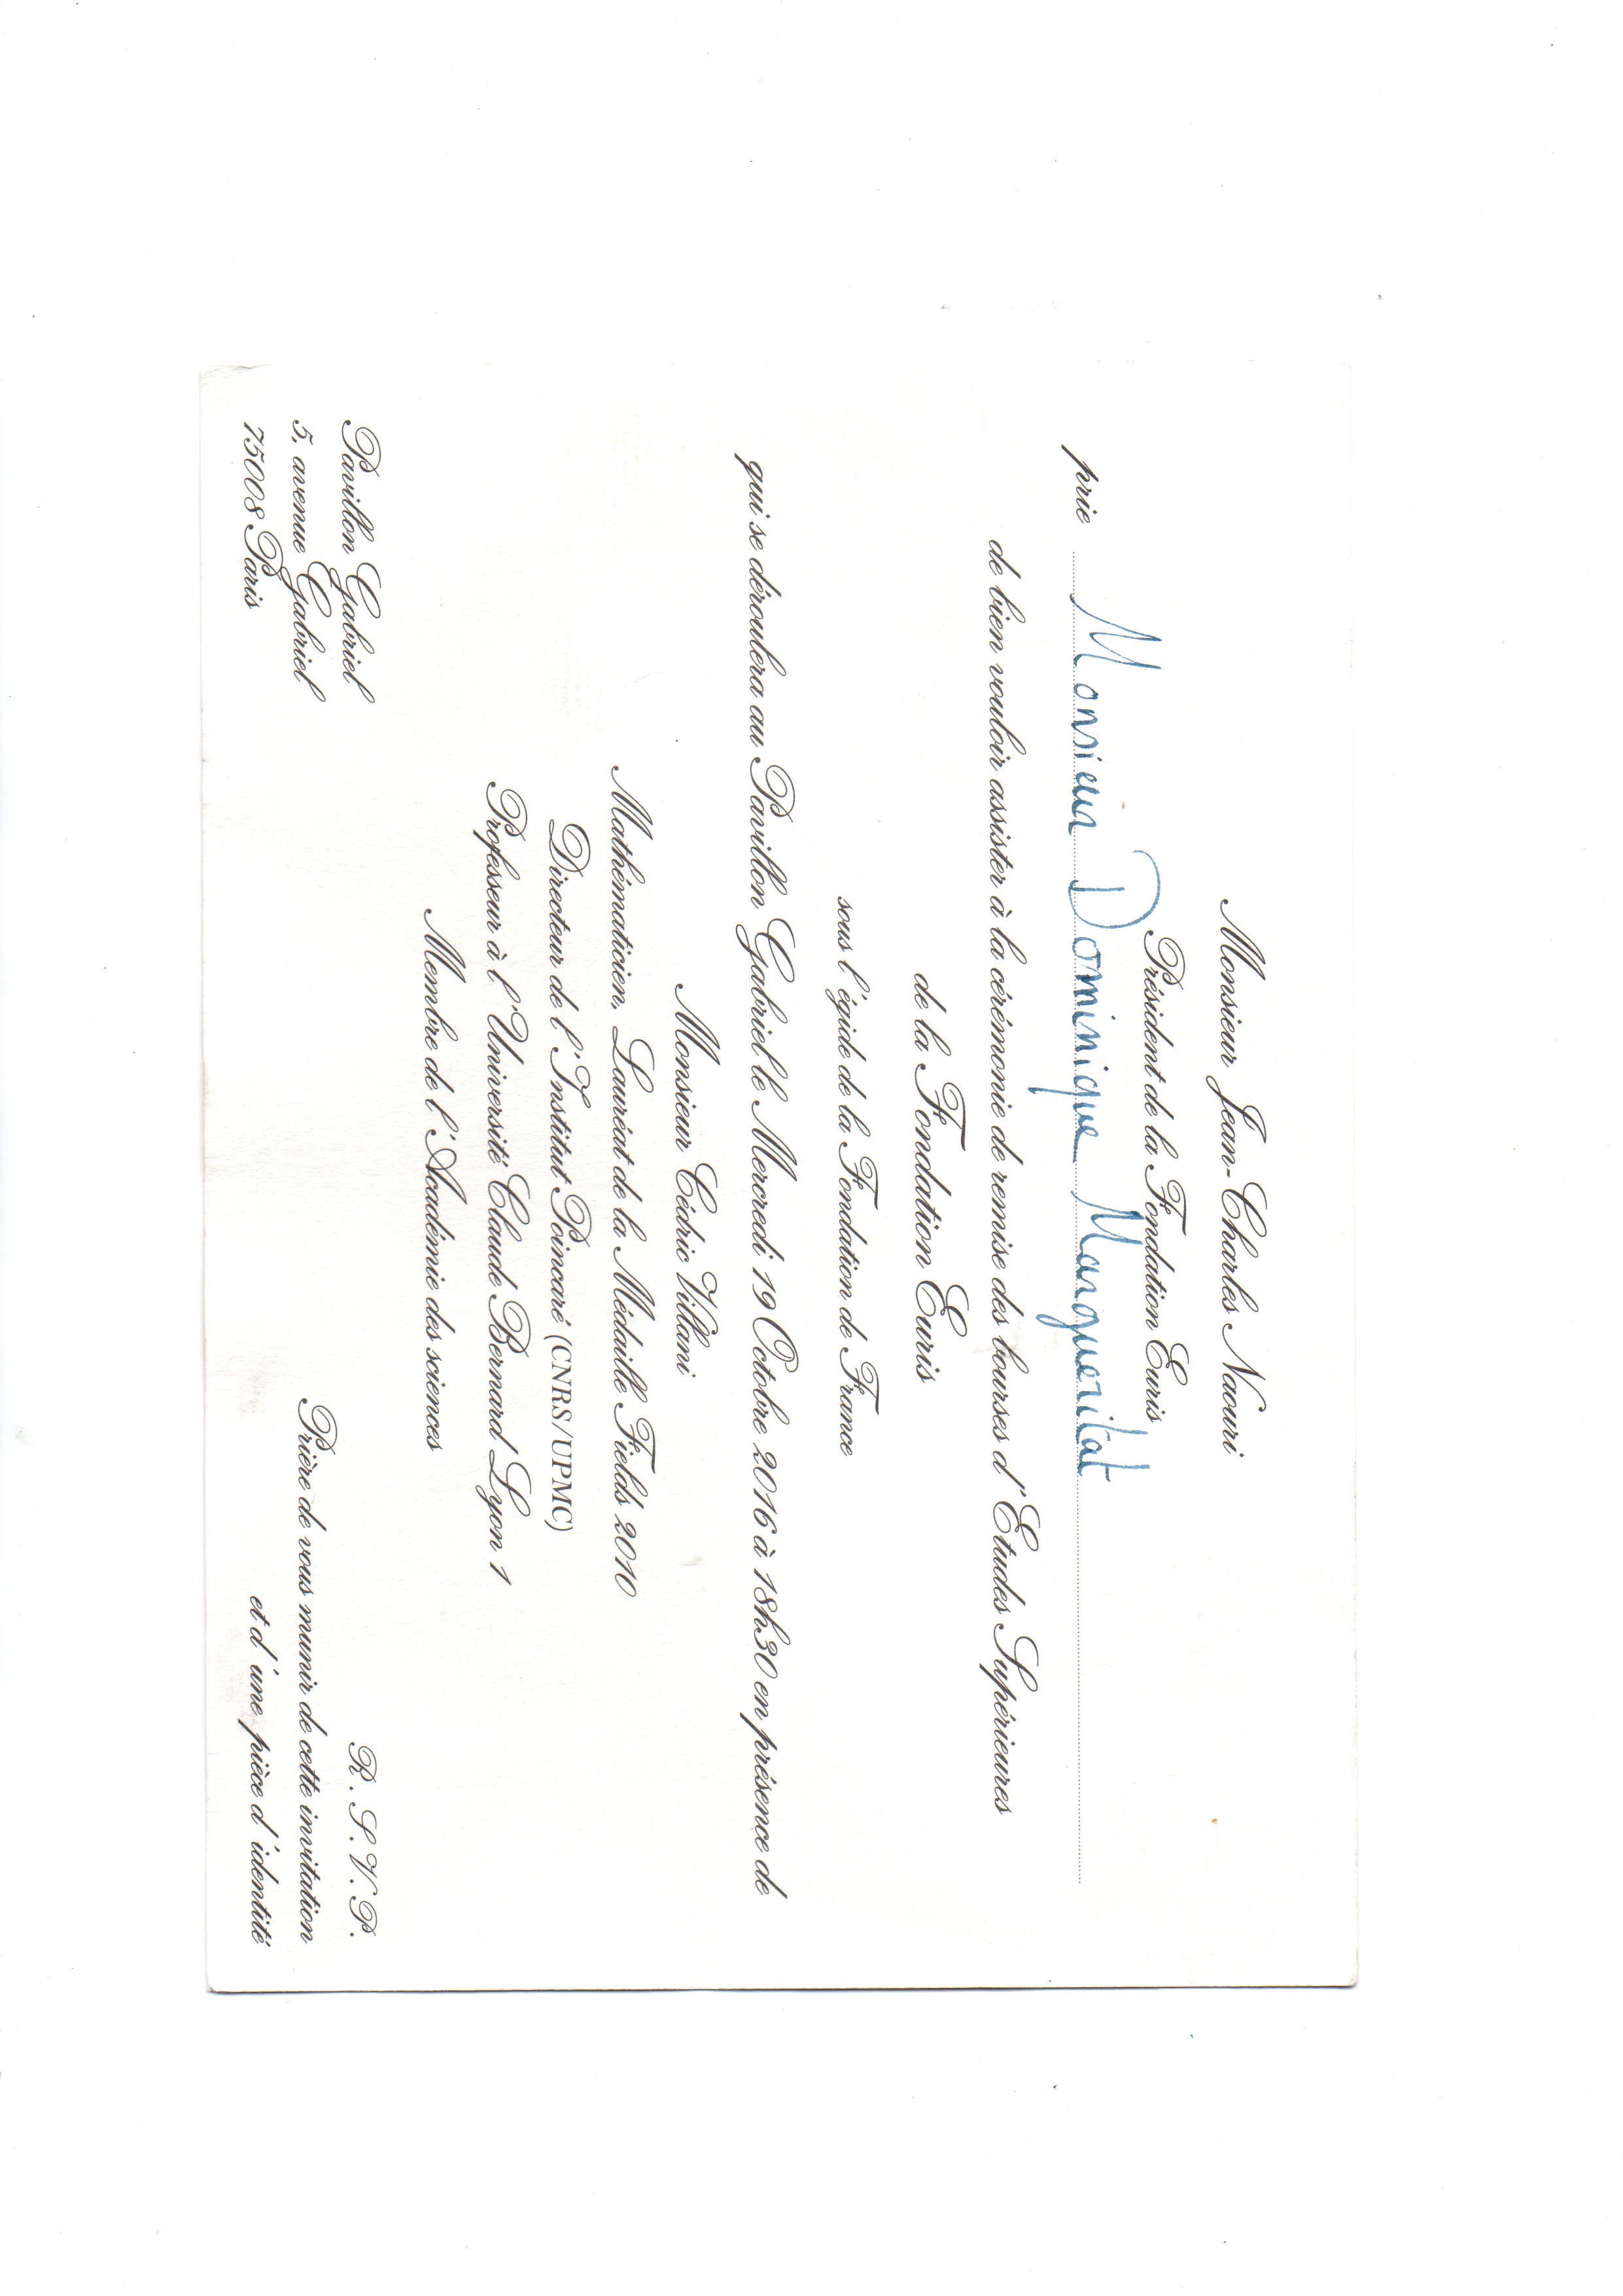 Monsieur Jean-Charles Naouri
Président de la Fondation Euris
prie Monsieur Dominique Marguerita
de bien vouloir assister à la cérémonie de remise des bourses d'Etudes Supérieures
de la Fondation Euris
sous l'égide de la Fondation de France
qui se déroulera au Pavillon Gabriel le Mercredi 19 Octobre 2016 à 18h30 en présence de
Monsieur Cédric Villani
Mathématicien, Lauréat de la Médaille Fields 2010
Directeur de l'Institut Poincaré (CNRS/UPMC)
Professeur à l'Université Claude Bernard Lyon 1
Membre de l'Académie des sciences
Pavillon Gabriel
5, avenue Gabriel
75008 Paris
R.S.V.P.
Prière de vous munir de cette invitation
et d'une pièce d'identité